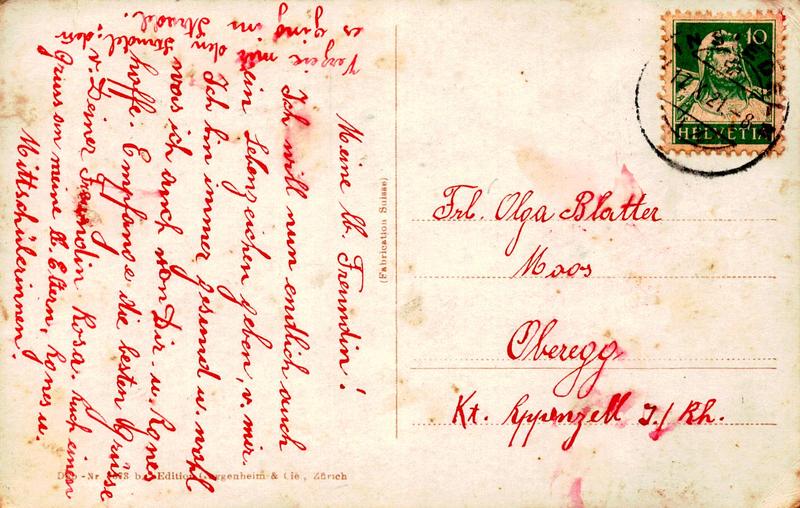 Meine lb. Freundin!
Ich will nun endlich auch
ein Lebenszeichen geben, v. mir.
Ich bin immer gesund u. wohl
was ich auch von Dir u. Agnes
hoffe. Empfange die besten Grüsse
v. Deiner Freundin Rosa. Auch einen
Gruss an meine lb. Eltern, Agnes u.
Mittschülerinnen.
Verzeie mir den Sudel: den
es ging im Strudel.
(Fabrication Suisse)
Edition Guggenheim & Cie., Zürich
10
HELVETIA
Frl. Olga Blatter
Moos
Oberegg
Kt. Appenzell I./Rh.